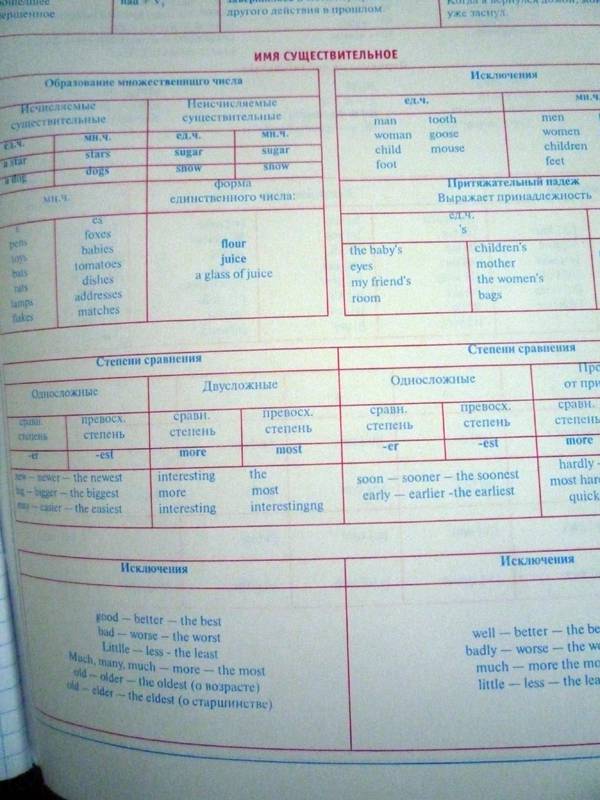 завершилось
другого действия в прошлом.
Когда я вернулся домой,
уже заснул.
ИМЯ СУЩЕСТВИТЕЛЬНОЕ
Образование множественнцго числа
Исчисляемые существительные
Неисчисляемые существительные
ед.ч. мн.ч. ед.ч. мн.ч.
a star stars sugar sugar
a dog dogs snow snow
мн.ч.
форма
единственного числа:
s es
pens foxes
toys babies
bats tomatoes
rats dishes
lamps addresses
flakes matches
flour
juice
a glass of juice
Исключения
ед.ч. мн.ч.
man tooth men
woman goose women
child mouse children
foot feet
Притяжательный падеж
Выражает принадлежность
ед.ч.
's
the baby's
eyes
my friend's
room
children's
mother
the women's
bags
Степени сравнения
Односложные Двусложные
сравн. степень превосх. степень сравн. степень превосх. степень
-er -est more most
new — newer — the newest
big — bigger — the biggest
easy — easier — the easiest
interesting the
more most
interesting interestingng
Степени сравнения
Односложные
от
сравн. степень превосх. степень сравн. степень
-er -est more
soon — sooner — the soonest
early — earlier -the earliest
hardly
most
Исключения
good — better — the best
bad — worse — the worst
Littlle — less - the least
Much, many, much — more — the most
old — older — the oldest (о возрасте)
old — elder — the eldest (о старшинстве)
Исключения
well — better — the
badly — worse — the
much — more the
little — less — the